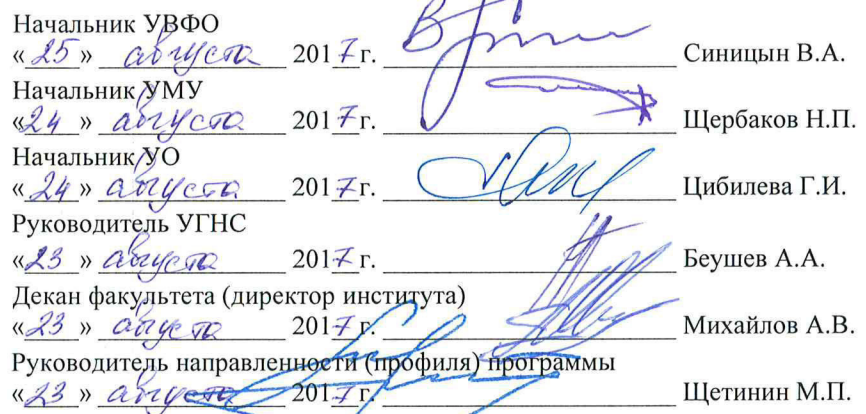 Начальник УВФО
«25» августа 2017г. Синицын В.А.
Начальник УМУ
«24» августа 2017г. Щербаков Н.П.
Начальник УО
«24» августа 2017г. Цибилева Г.И.
Руководитель УГНС
«23» августа 2017г. Беушев А.А.
Декан факультета (директор института)
«23» августа 2017г. Михайлов А.В.
Руководитель направленности (профиля) программы
«23» августа 2017г. Щетинин М.П.